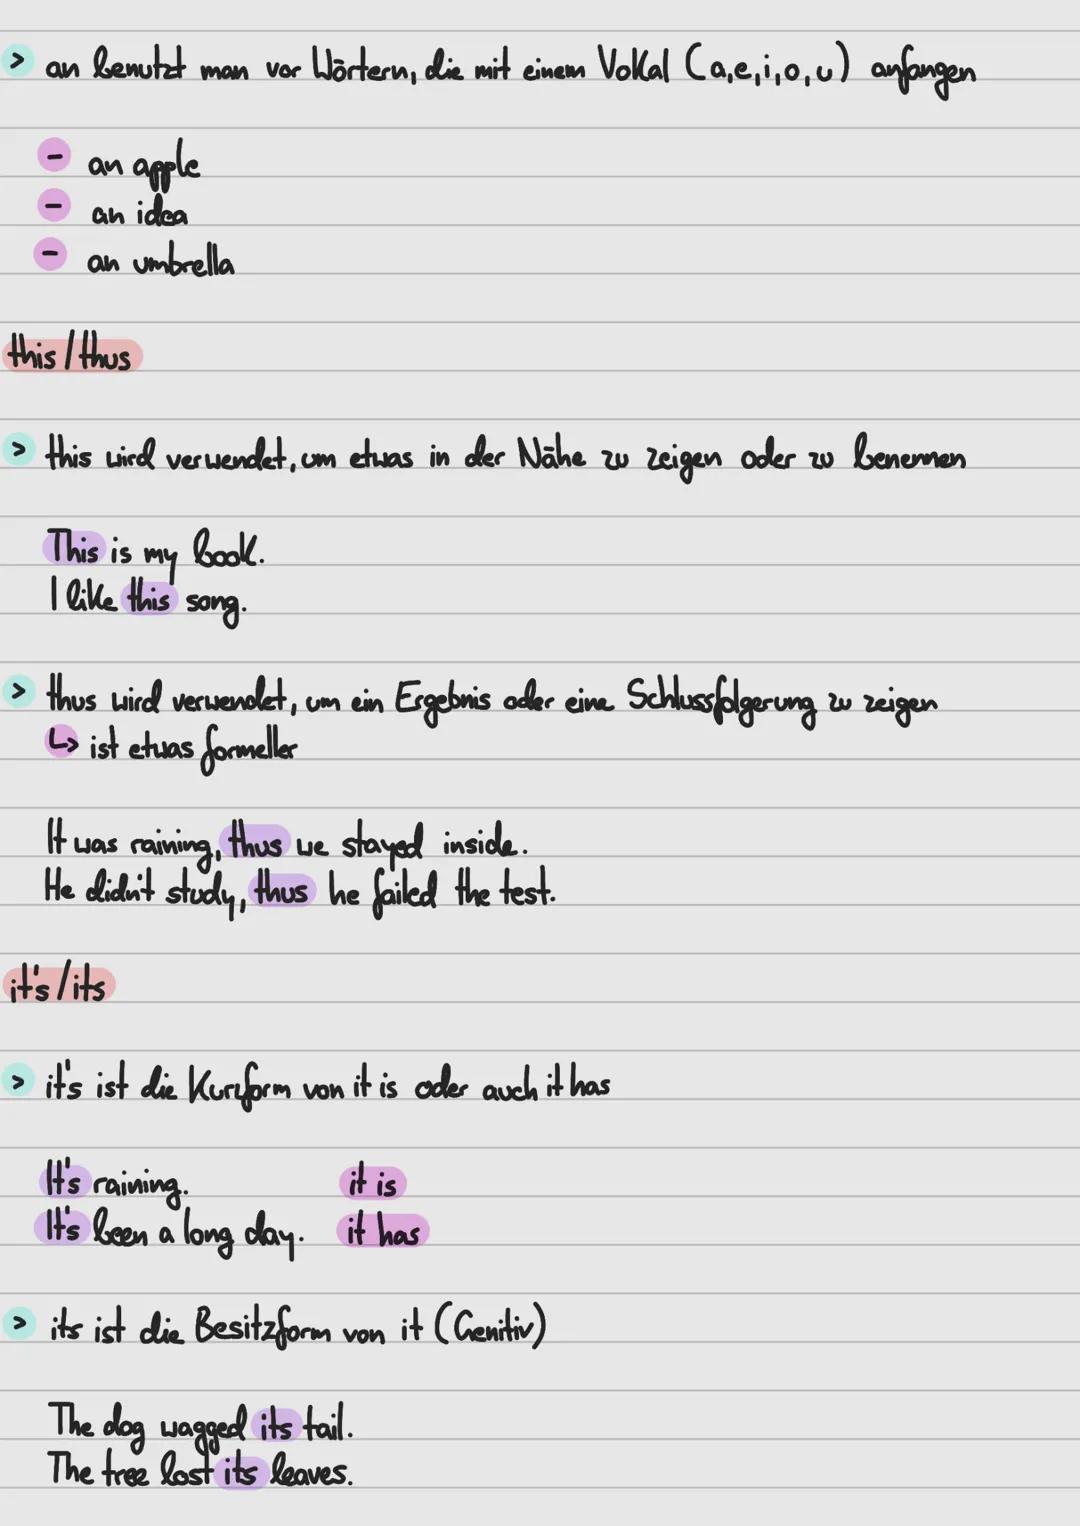 > an benutzt man vor Wörtern, die mit einem Vokal (a,e,i,o,u) anfangen
- an apple
- an idea
- an umbrella
this / thus
> this wird verwendet, um etwas in der Nähe zu zeigen oder zu benennen
This is my book.
I like this song.
> thus wird verwendet, um ein Ergebnis oder eine Schlussfolgerung zu zeigen
↳ ist etwas formeller
It was raining, thus we stayed inside.
He didn't study, thus he failed the test.
it's / its
> it's ist die Kurzform von it is oder auch it has
It's raining. it is
It's been a long day. it has
> its ist die Besitzform von it (Genitiv)
The dog wagged its tail.
The tree lost its leaves.